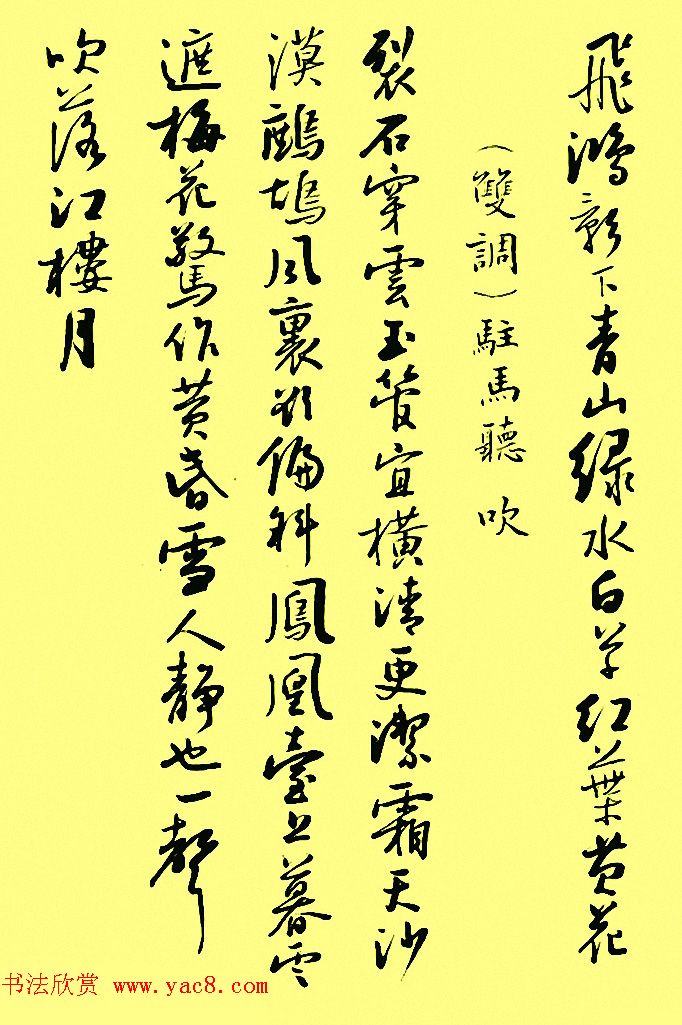 飛鴻影下青山綠水白草紅葉黃花
（雙調）駐馬聽 吹
裂石穿雲玉管宜橫清更潔霜天沙
漠鷓鴣風裏欲偏斜鳳凰臺上暮雲
遮梅花驚作黃昏雪人靜也一聲
吹落江樓月
书法欣赏 www.yac8.com